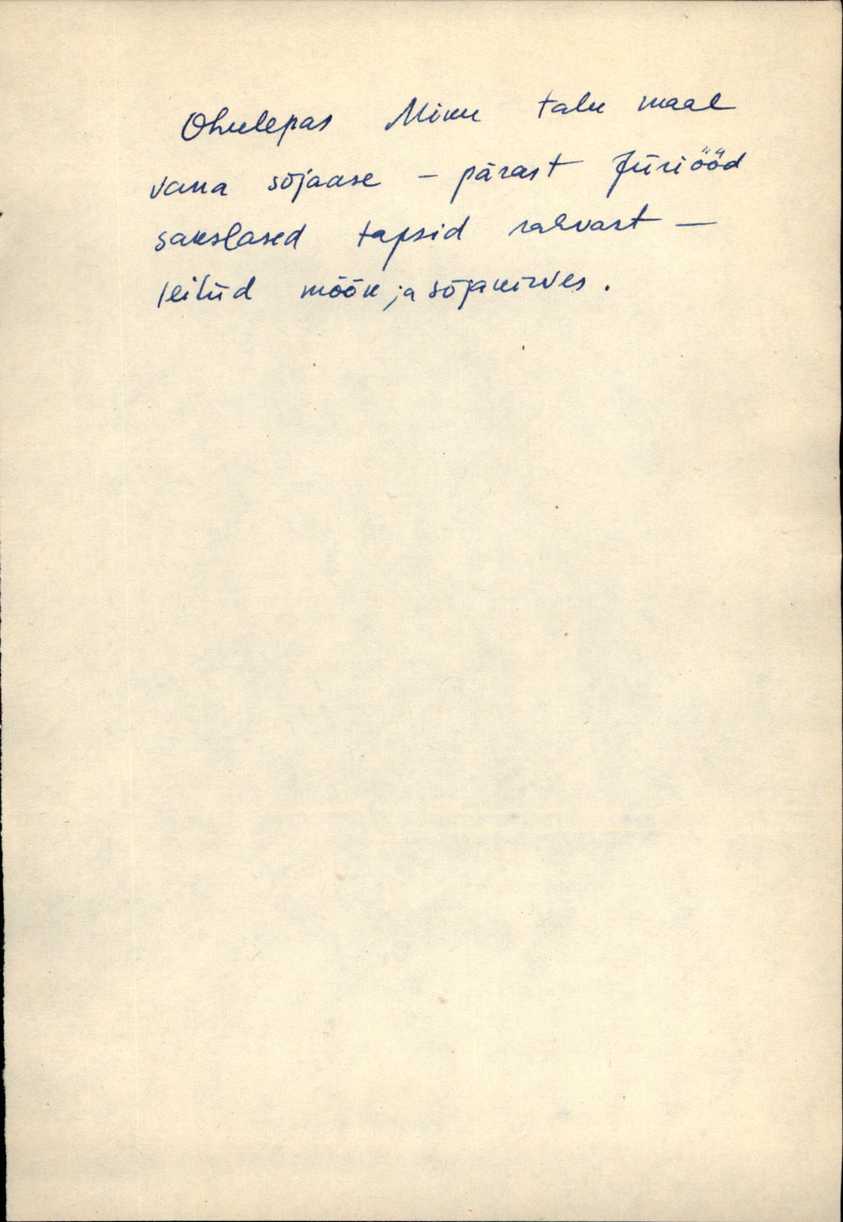 Ohulepas Miku talu maal
vana sõjaase – pärast Jüriööd
sakslased tapsid rahvast –
leitud mõõk ja sõjakirves.